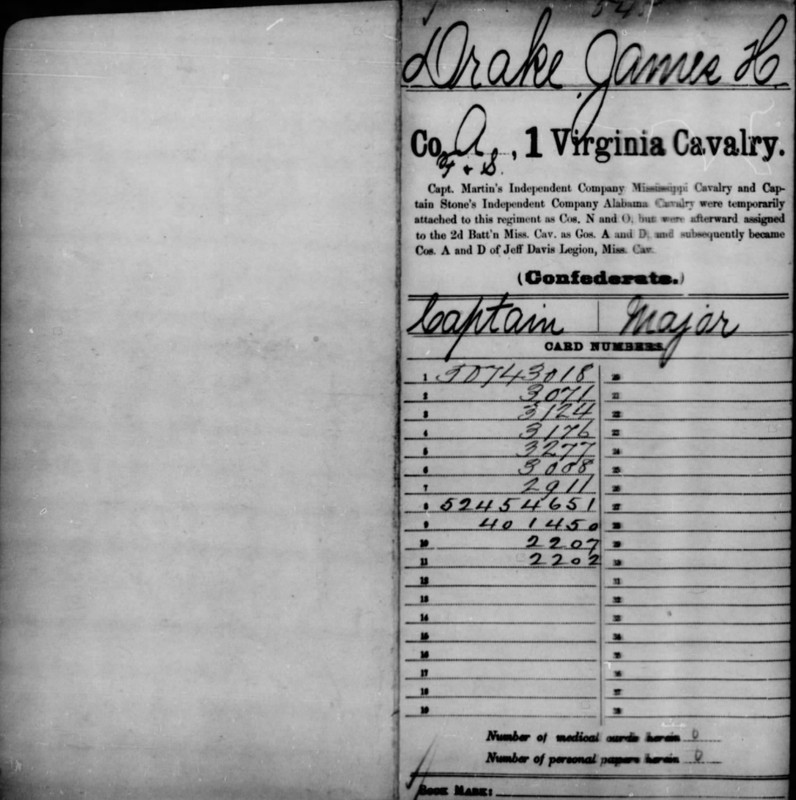 Drake, James H.
Co. A, 1 Virginia Cavalry.
F & S.
Capt. Martin's Independent Company Mississippi Cavalry and Cap-
tain Stone's Independent Company Alabama Cavalry were temporarily
attached to this regiment as Cos. N and O, but were afterward assigned
to the 2d Batt'n Miss. Cav. as Cos. A and D, and subsequently became
Cos. A and D of Jeff Davis Legion, Miss. Cav.
(Confederate.)
Captain | Major
CARD NUMBERS.
1 50743018 20
2 3071 21
3 3124 22
4 3176 23
5 3277 24
6 3008 25
7 2911 26
8 52454651 27
9 401450 28
10 2207 29
11 2202
12
13
14
15
16
17
18
19
Number of medical cards herein 0
Number of personal papers herein 0
BOOK MARK: